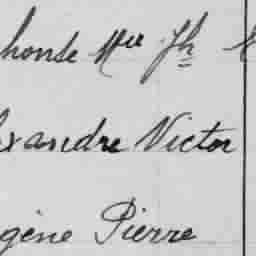 honse Mie Jh
xandre Victor
gène Pierre